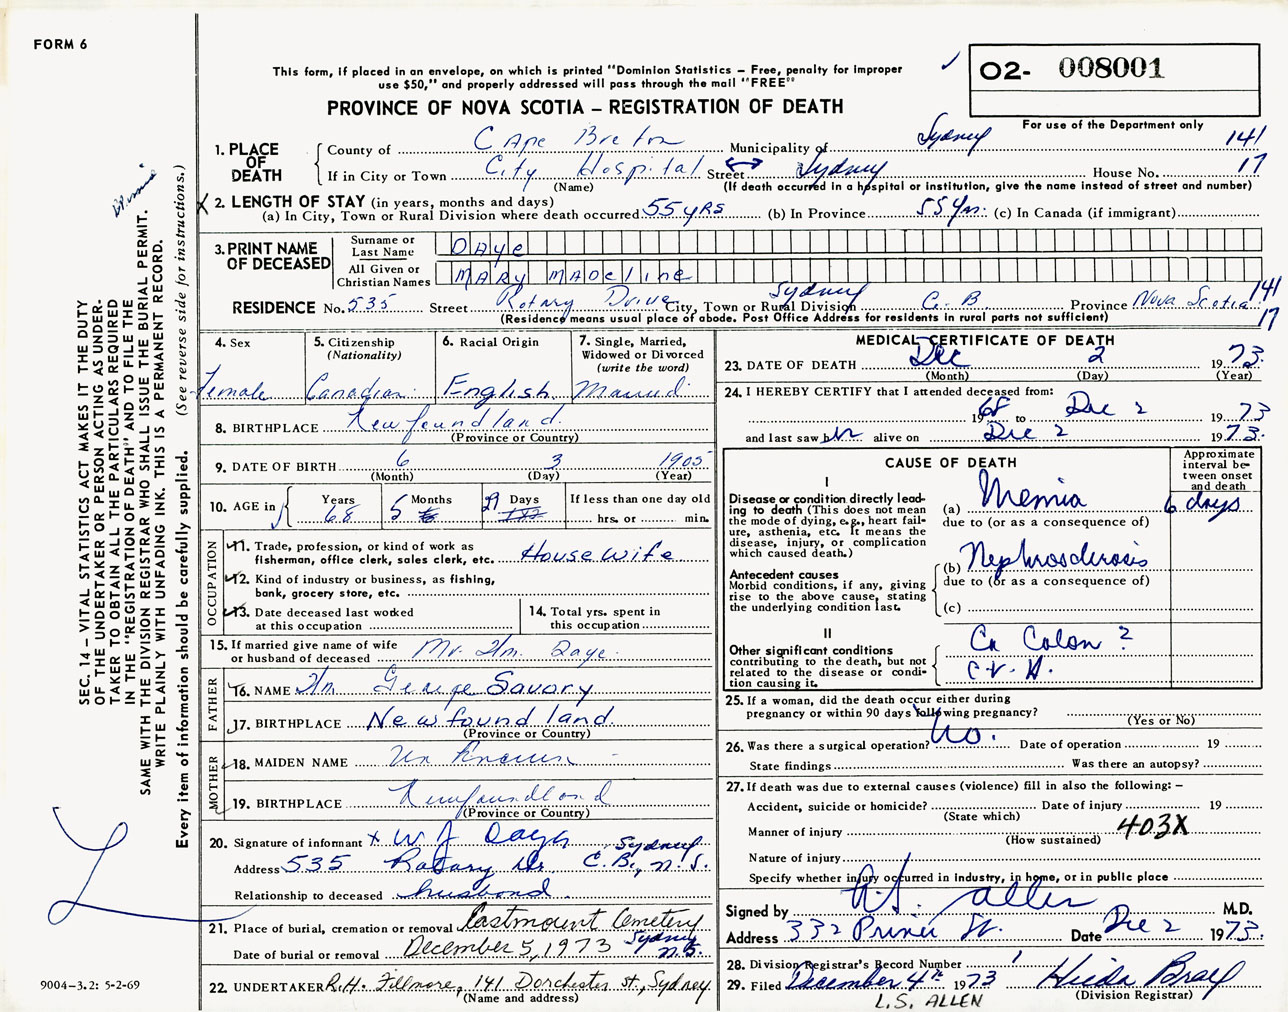 FORM 6
This form, if placed in an envelope, on which is printed "Dominion Statistics – Free, penalty for improper
use $50," and properly addressed will pass through the mail "FREE"
PROVINCE OF NOVA SCOTIA – REGISTRATION OF DEATH
O2- 008001
For use of the Department only
1. PLACE OF DEATH
County of Cape Breton Municipality of Sydney 141
If in City or Town City Hospital Street Sydney House No. 17
(Name) (If death occurred in a hospital or institution, give the name instead of street and number)
X 2. LENGTH OF STAY (in years, months and days)
(a) In City, Town or Rural Division where death occurred 55 yRS (b) In Province 55 Yrs. (c) In Canada (if immigrant)
3. PRINT NAME OF DECEASED
Surname or Last Name DAye
All Given or Christian Names MARy MADeline
RESIDENCE No. 535 Street Rotary Drive City, Town or Rural Division Sydney C. B Province Nova Scotia 141
(Residence means usual place of abode. Post Office Address for residents in rural parts not sufficient) 17
4. Sex
Female
5. Citizenship (Nationality)
Canadian
6. Racial Origin
English
7. Single, Married, Widowed or Divorced (write the word)
Married
8. BIRTHPLACE Newfoundland
(Province or Country)
9. DATE OF BIRTH 6 3 1905
(Month) (Day) (Year)
10. AGE in Years 68 Months 5 Days 29 If less than one day old
hrs. or min.
OCCUPATION
11. Trade, profession, or kind of work as
fisherman, office clerk, sales clerk, etc. House wife
12. Kind of industry or business, as fishing,
bank, grocery store, etc.
13. Date deceased last worked
at this occupation
14. Total yrs. spent in
this occupation
15. If married give name of wife
or husband of deceased Mr. Wm. Daye
FATHER
16. NAME Wm George Savory
17. BIRTHPLACE Newfoundland
(Province or Country)
MOTHER
18. MAIDEN NAME Un Known
19. BIRTHPLACE Newfoundland
(Province or Country)
20. Signature of informant x W J Daye
Address 535 Rotary Dr Sydney C. B., N. S.
Relationship to deceased husband
21. Place of burial, cremation or removal Eastmount Cemetery
Date of burial or removal December 5, 1973 Sydney N.S.
22. UNDERTAKER R.H. Fillmore, 141 Dorchester St., Sydney
(Name and address)
MEDICAL CERTIFICATE OF DEATH
23. DATE OF DEATH Dec 2 1973
(Month) (Day) (Year)
24. I HEREBY CERTIFY that I attended deceased from:
1968 to Dec 2 1973
and last saw her alive on Dec 2 1973
CAUSE OF DEATH
Approximate interval between onset and death
I
Disease or condition directly leading to death (This does not mean the mode of dying, e.g., heart failure, asthenia, etc. It means the disease, injury, or complication which caused death.)
(a) Uremia 6 days
due to (or as a consequence of)
Antecedent causes
Morbid conditions, if any, giving rise to the above cause, stating the underlying condition last.
(b) Nephrosclerosis
due to (or as a consequence of)
(c)
II
Other significant conditions
contributing to the death, but not related to the disease or condition causing it.
Ca Colon ?
C. V. A.
25. If a woman, did the death occur either during
pregnancy or within 90 days following pregnancy?
(Yes or No)
26. Was there a surgical operation? No. Date of operation 19
State findings Was there an autopsy?
27. If death was due to external causes (violence) fill in also the following: –
Accident, suicide or homicide? Date of injury 19
(State which)
Manner of injury 403X
(How sustained)
Nature of injury
Specify whether injury occurred in industry, in home, or in public place
Signed by Allen M.D.
Address 332 Prince St. Date Dec 2 1973.
28. Division Registrar's Record Number
29. Filed December 4th 1973 Hilda Bray
(Division Registrar)
L.S. ALLEN
Uremia
SEC. 14 – VITAL STATISTICS ACT MAKES IT THE DUTY
OF THE UNDERTAKER OR PERSON ACTING AS UNDER-
TAKER TO OBTAIN ALL THE PARTICULARS REQUIRED
IN THE "REGISTRATION OF DEATH" AND TO FILE THE
SAME WITH THE DIVISION REGISTRAR WHO SHALL ISSUE THE BURIAL PERMIT.
WRITE PLAINLY WITH UNFADING INK. THIS IS A PERMANENT RECORD.
Every item of information should be carefully supplied. (See reverse side for instructions.)
9004-3.2: 5-2-69